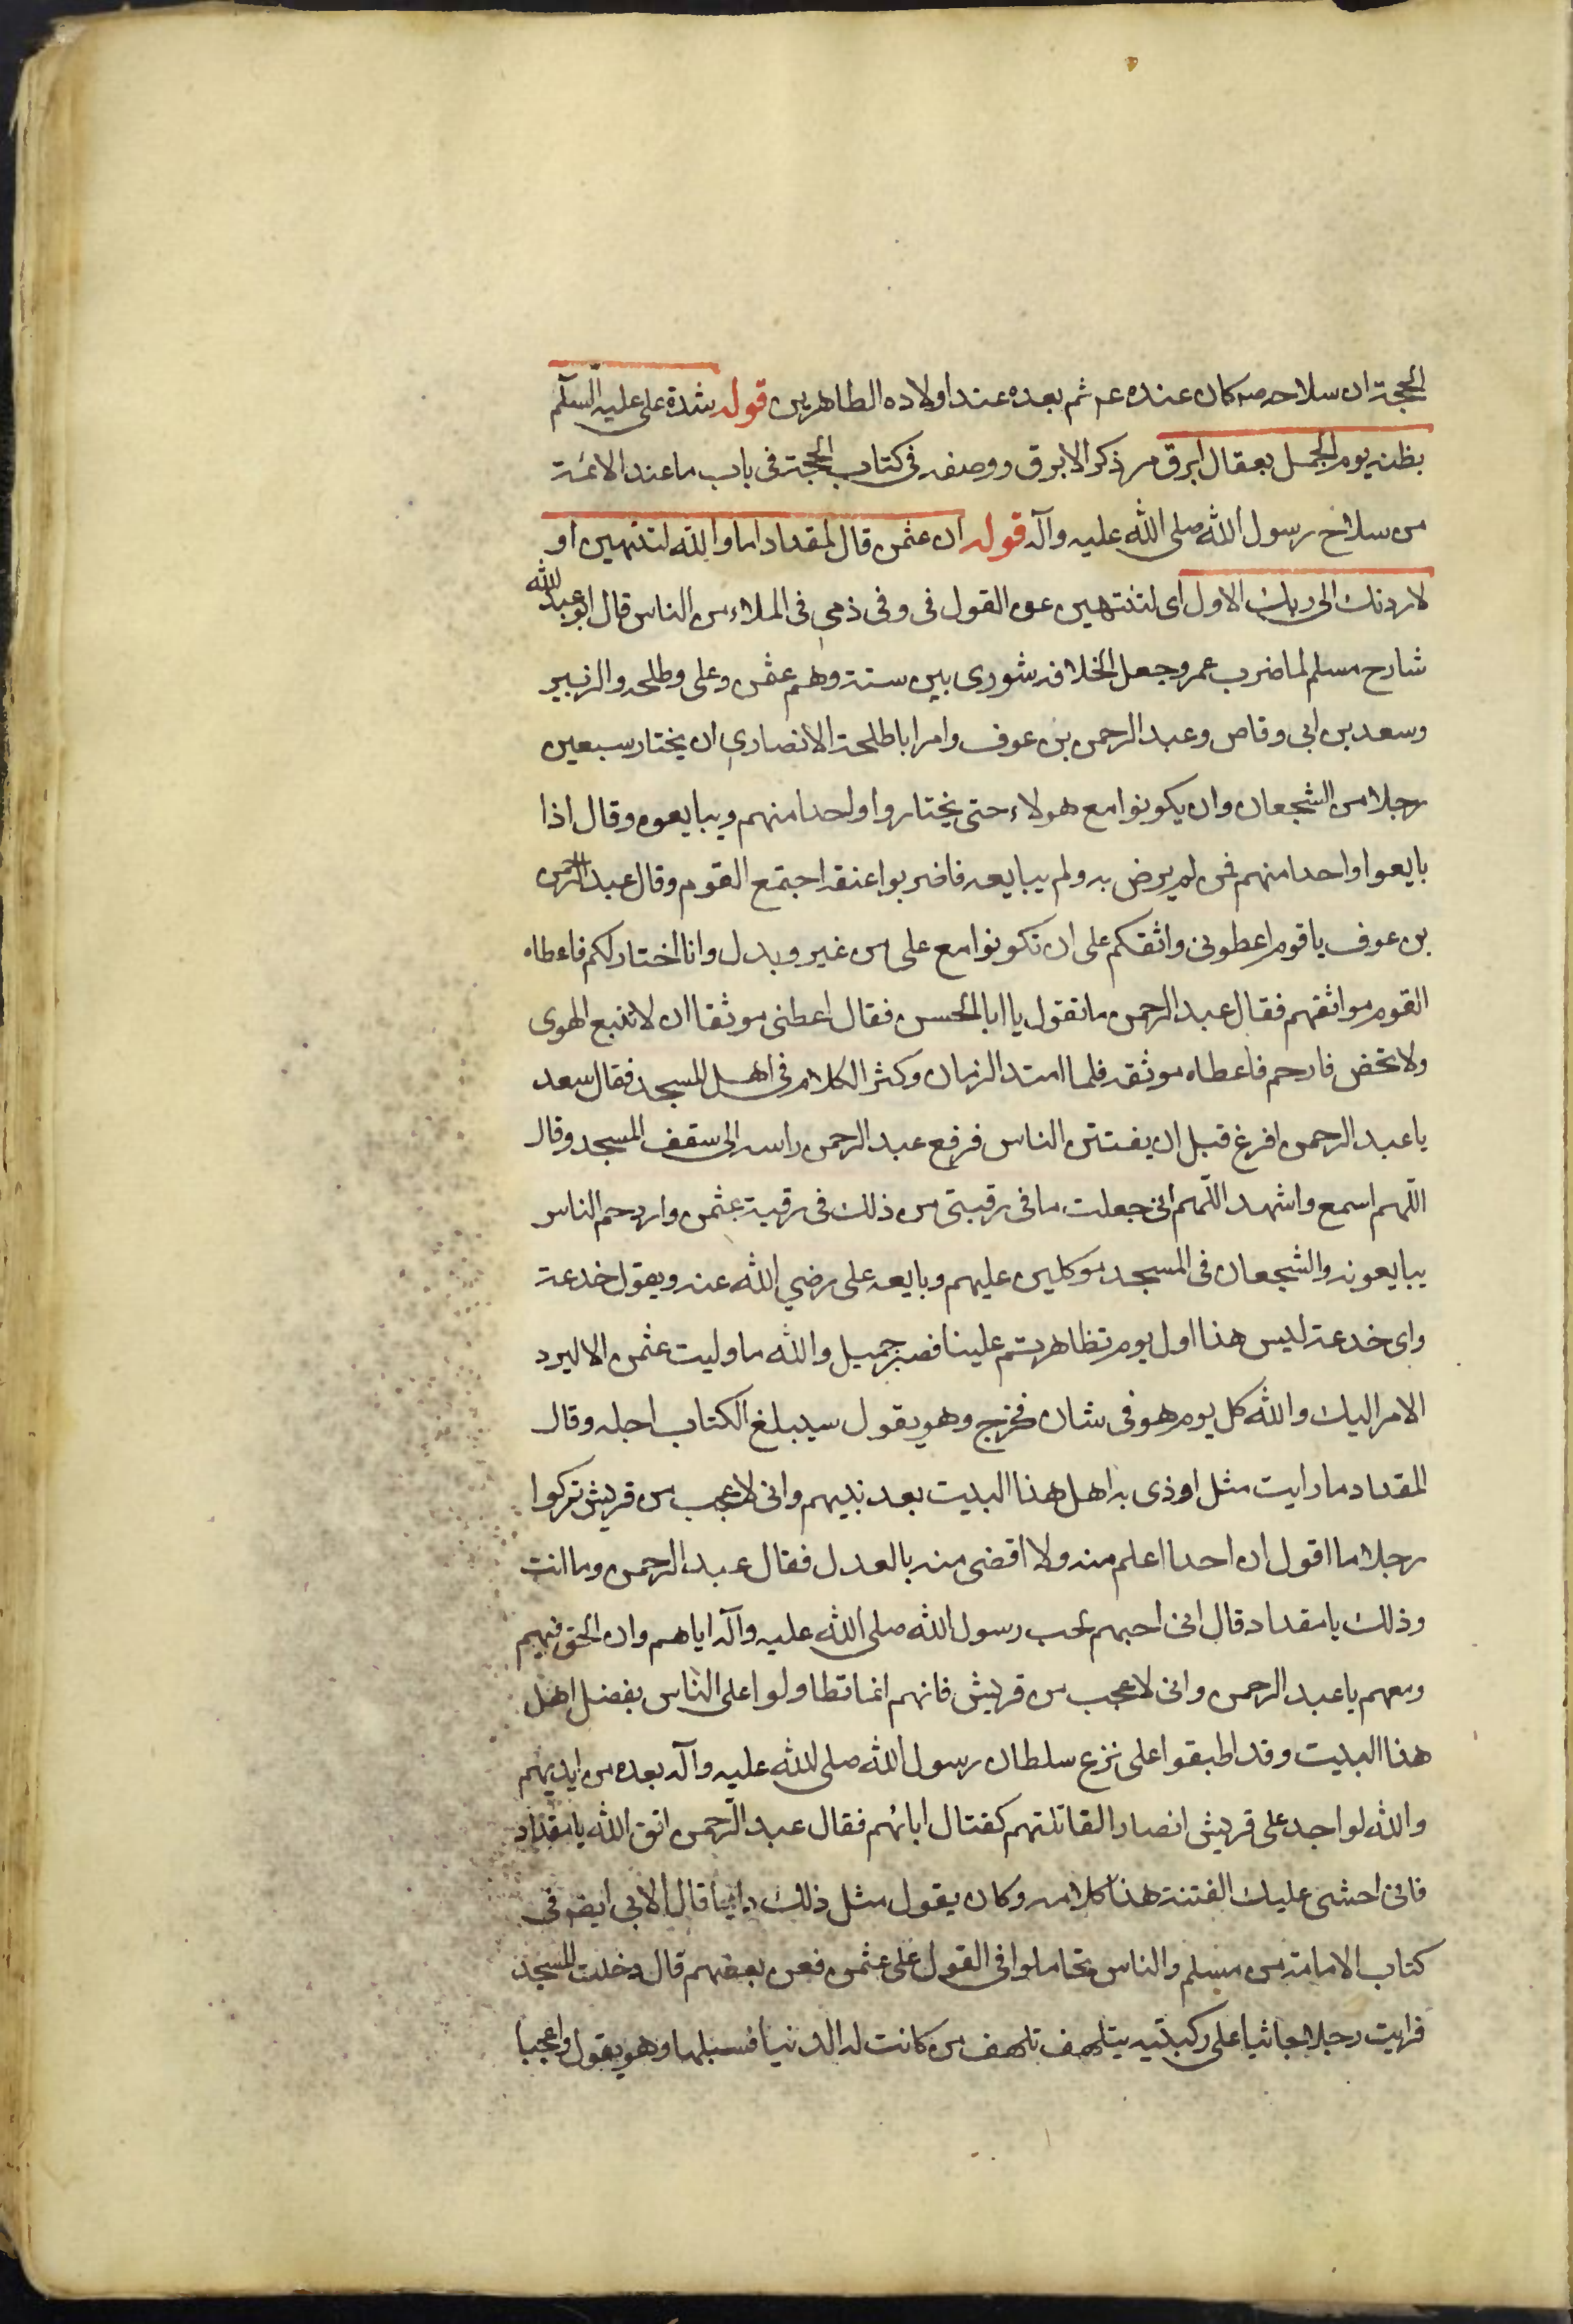 الحجة ان سلاحه صه كان عنده عم ثم بعده عند اولاده الطاهرين قوله شدة على عليه السلم
بطنه يوم الجمل بعقال ابرق مر ذكر الابرق ووصفه فى كتاب الحجة فى باب ما عند الائمة
من سلاح رسول الله صلى الله عليه وآله قوله ان عثمن قال لمقداد اما والله لتنتهين او
لاردنك الى ربك الاول اى لتنتهين عن القول فى وفى ذمى فى الملاء من الناس قال ابو عبد الله
شارح مسلم لما ضرب عمر وجعل الخلافه شورى بين ستة وهم عثمن وعلى وطلحه والزبير
وسعد بن ابى وقاص وعبد الرحمن بن عوف وامر ابا طلحة الانصارى ان يختار سبعين
رجلا من الشجعان وان يكونوا مع هولاء حتى يختاروا واحدا منهم ويبايعوه وقال اذا
بايعوا واحدا منهم فمن لم يرض به ولم يبايعه فاضربوا عنقه اجتمع القوم وقال عبد الرحمن
بن عوف يا قوم اعطونى واثقكم على ان تكونوا مع على من غير وبدل وانا اختار لكم فاعطاه
القوم مواثقهم فقال عبد الرحمن ما تقول يا ابا الحسن فقال اعطنى موثقا ان لا تتبع الهوى
ولا تخض فا رحم فاعطاه موثقه فلما امتد الزمان وكثر الكلام فى اهل المسجد فقال سعد
يا عبد الرحمن افرغ قبل ان يفتتن الناس فرفع عبد الرحمن راسه الى سقف المسجد وقال
اللهم اسمع واشهد اللهم انى جعلت ما فى رقبتى من ذلك فى رقبة عثمن وازدحم الناس
يبايعونه والشجعان فى المسجد موكلين عليهم وبايعه على رضي الله عنه ويقول خدعة
واى خدعة ليس هذا اول يوم تظاهرتم علينا فصبر جميل والله ما وليت عثمن الا ليرد
الامر اليك والله كل يوم هو فى شان فخرج وهو يقول سيبلغ الكتاب اجله وقال
المقداد ما رايت مثل اوذى به اهل هذا البيت بعد نبيهم وانى لاعجب من قريش تركوا
رجلا ما اقول ان احدا اعلم منه ولا اقضى منه بالعدل فقال عبد الرحمن وما انت
وذلك يا مقداد قال انى احبهم لحب رسول الله صلى الله عليه وآله اياهم وان الحق فيهم
ومعهم يا عبد الرحمن وانى لاعجب من قريش فانهم انما تطاولوا على الناس بفضل اهل
هذا البيت وقد اطبقوا على نزع سلطان رسول الله صلى الله عليه وآله بعده من ايديهم
والله لو اجد على قريش انصارا لقاتلتهم كقتال ابائهم فقال عبد الرحمن اتق الله يا مقداد
فانى اخشى عليك الفتنة هذا كلامه وكان يقول مثل ذلك دايما قال الابى ايضا فى
كتاب الامامة من مسلم والناس تحاملوا فى القول على عثمن فعن بعضهم قال دخلت المسجد
فرايت رجلا جاثيا على ركبتيه يتلهف تلهف من كانت له الدنيا فسبلها وهو يقول واعجبا